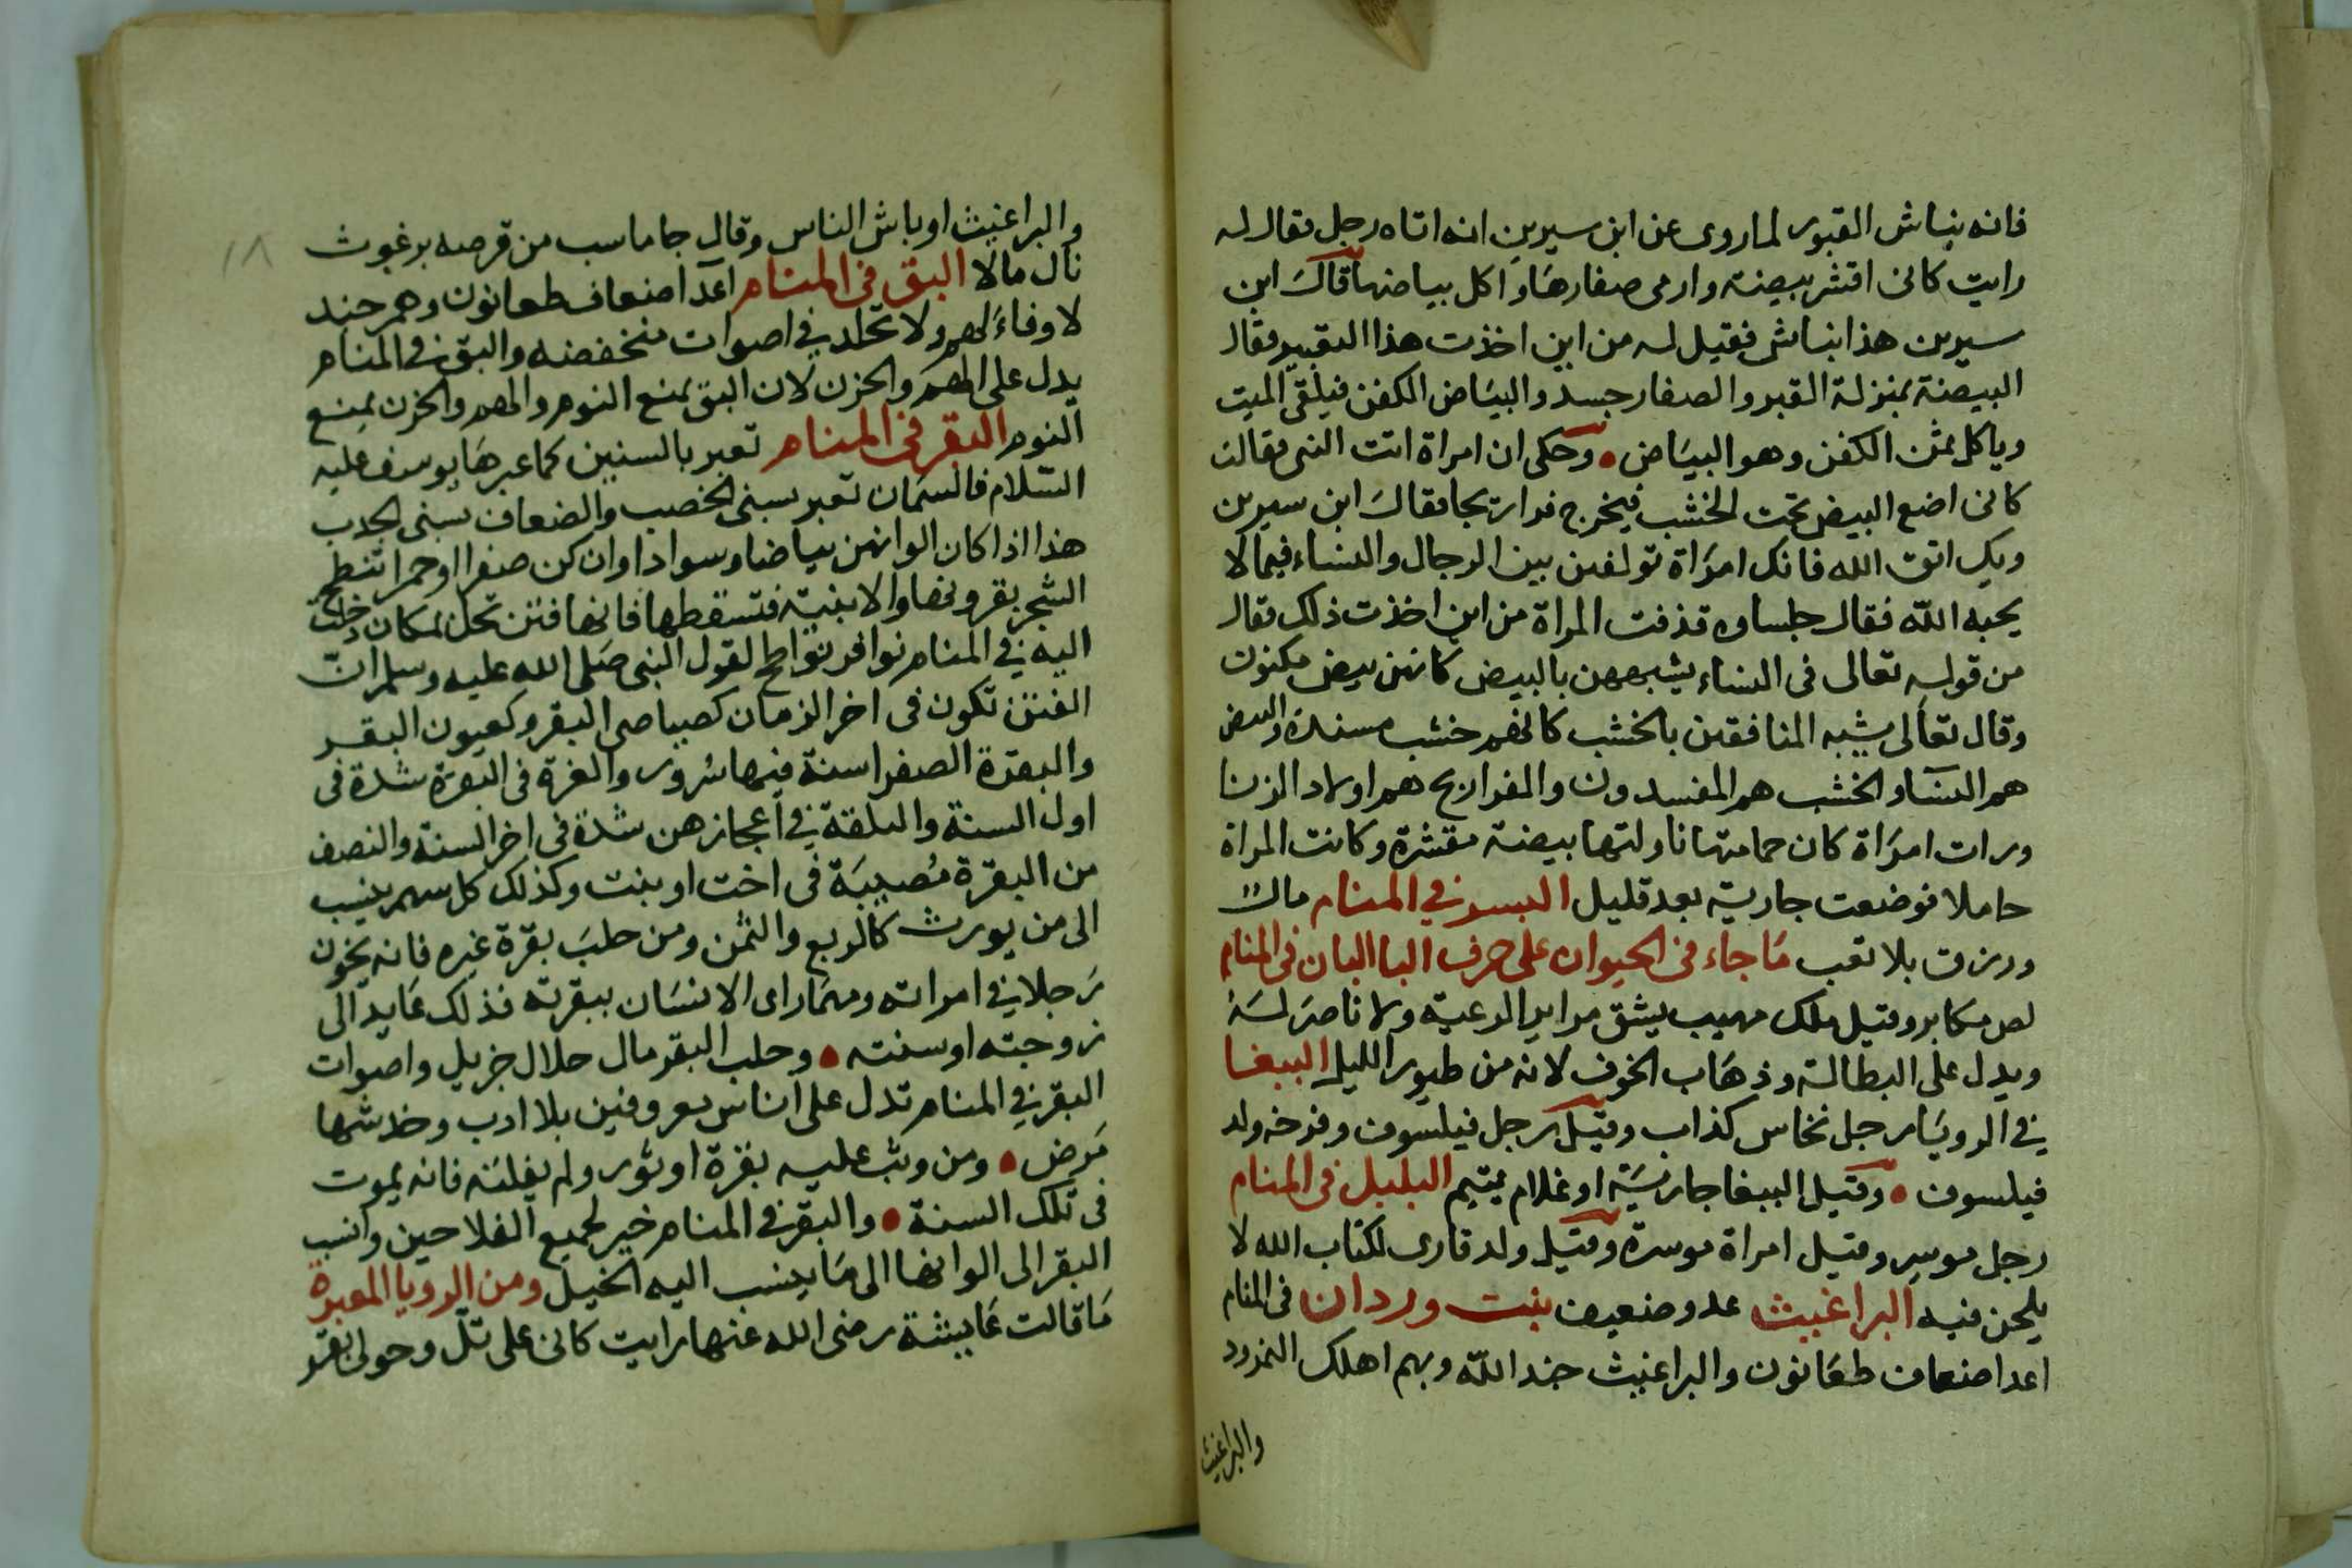 فانه نباش القبور لما روى عن ابن سيرين انه اتاه رجل فقال له
رايت كانى اقشر بيضة وارمى صفارها واكل بياضها قال ابن
سيرين هذا نباش فقيل له من اين اخذت هذا التعبير فقال
البيضة بمنزلة القبر والصفار جسد والبياض الكفن فيلقى الميت
وياكل بثمن الكفن وهو البياض • وحكى ان امراة اتت فقالت
كانى اضع البيض تحت الخشب فيخرج فراريجا فقال ابن سيرين
ويك اتق الله فانك امراة تولفين بين الرجال والنساء فيما لا
يحبه الله فقال جلساوه قذفت المراة من اين اخذت ذلك فقال
من قوله تعالى فى النساء يشبههن بالبيض كانهن بيض مكنون
وقال تعالى يشبه المنافقين بالخشب كانهم خشب مسندة والبيض
هم النسا والخشب هم المفسدون والفراريج هم اولاد الزنا
ورات امراة كان حماتها ناولتها بيضة مقشرة وكانت المراة
حاملا فوضعت جارية بعد قليل البسر في المنام مال
ورزق بلا تعب ما جاء فى الحيوان على حرف البا البان فى المنام
لص مكابر وقيل ملك مهيب يشق مراير الرعية ولا ناصر له
ويدل على البطالة وذهاب الخوف لانه من طيور الليل الببغا
في الرويا رجل نخاس كذاب وقيل رجل فيلسوف وفرخه ولد
فيلسوف • وقيل الببغا جارية او غلام يتيم البلبل فى المنام
رجل موسر وقيل امراة موسرة وقيل ولد قارى لكتاب الله لا
يلحن فيه البراغيث عدو ضعيف بنت وردان فى المنام
اعدا ضعاف طعانون والبراغيث جند الله وبهم اهلك النمرود
والبراغيث
١٨
والبراغيث اوباش الناس وقال جاماسب من قرصه برغوث
نال مالا البق فى المنام اعدا ضعاف طعانون وهم جند
لا وفاء لهم ولا تجلد في اصوات منخفضه والبق فى المنام
يدل على الهم والحزن لان البق يمنع النوم والهم والحزن يمنع
النوم البقر فى المنام تعبر بالسنين كما عبرها يوسف عليه
السلام فالسمان تعبر بسنى الخصب والضعاف بسنى الجدب
هذا اذا كان الوانهن بياضا وسوادا وان كن صفرا او حمرا تنطح
الشجر بقرونها والابنية فتسقطها فانها فتن تحل لمكان دخلت
اليه في المنام نوافر نواطح لقول النبى صلى الله عليه وسلم ان
الفتن تكون فى اخر الزمان كصياصى البقر وكعيون البقر
والبقرة الصفرا سنة فيها سرور والغرة فى البقرة شدة فى
اول السنة والبلقة في اعجازهن شدة فى اخر السنة والنصف
من البقرة مصيبة فى اخت او بنت وكذلك كل سهم ينسب
الى من يورث كالربع والثمن ومن حلب بقرة غيره فانه يخون
رجلا في امراته ومهما راى الانسان ببقرته فذلك عايد الى
زوجته او سنته • وحلب البقر مال حلال جزيل واصوات
البقر في المنام تدل على اناس معروفين بلا ادب وخدشها
مرض • ومن وثب عليه بقرة او ثور ولم يفلته فانه يموت
فى تلك السنة • والبقر فى المنام خير لجميع الفلاحين وانسب
البقر الى الوانها الى ما ينسب اليه الخيل ومن الرويا المعبرة
ما قالت عايشة رضى الله عنها رايت كانى على تل وحولى بقر